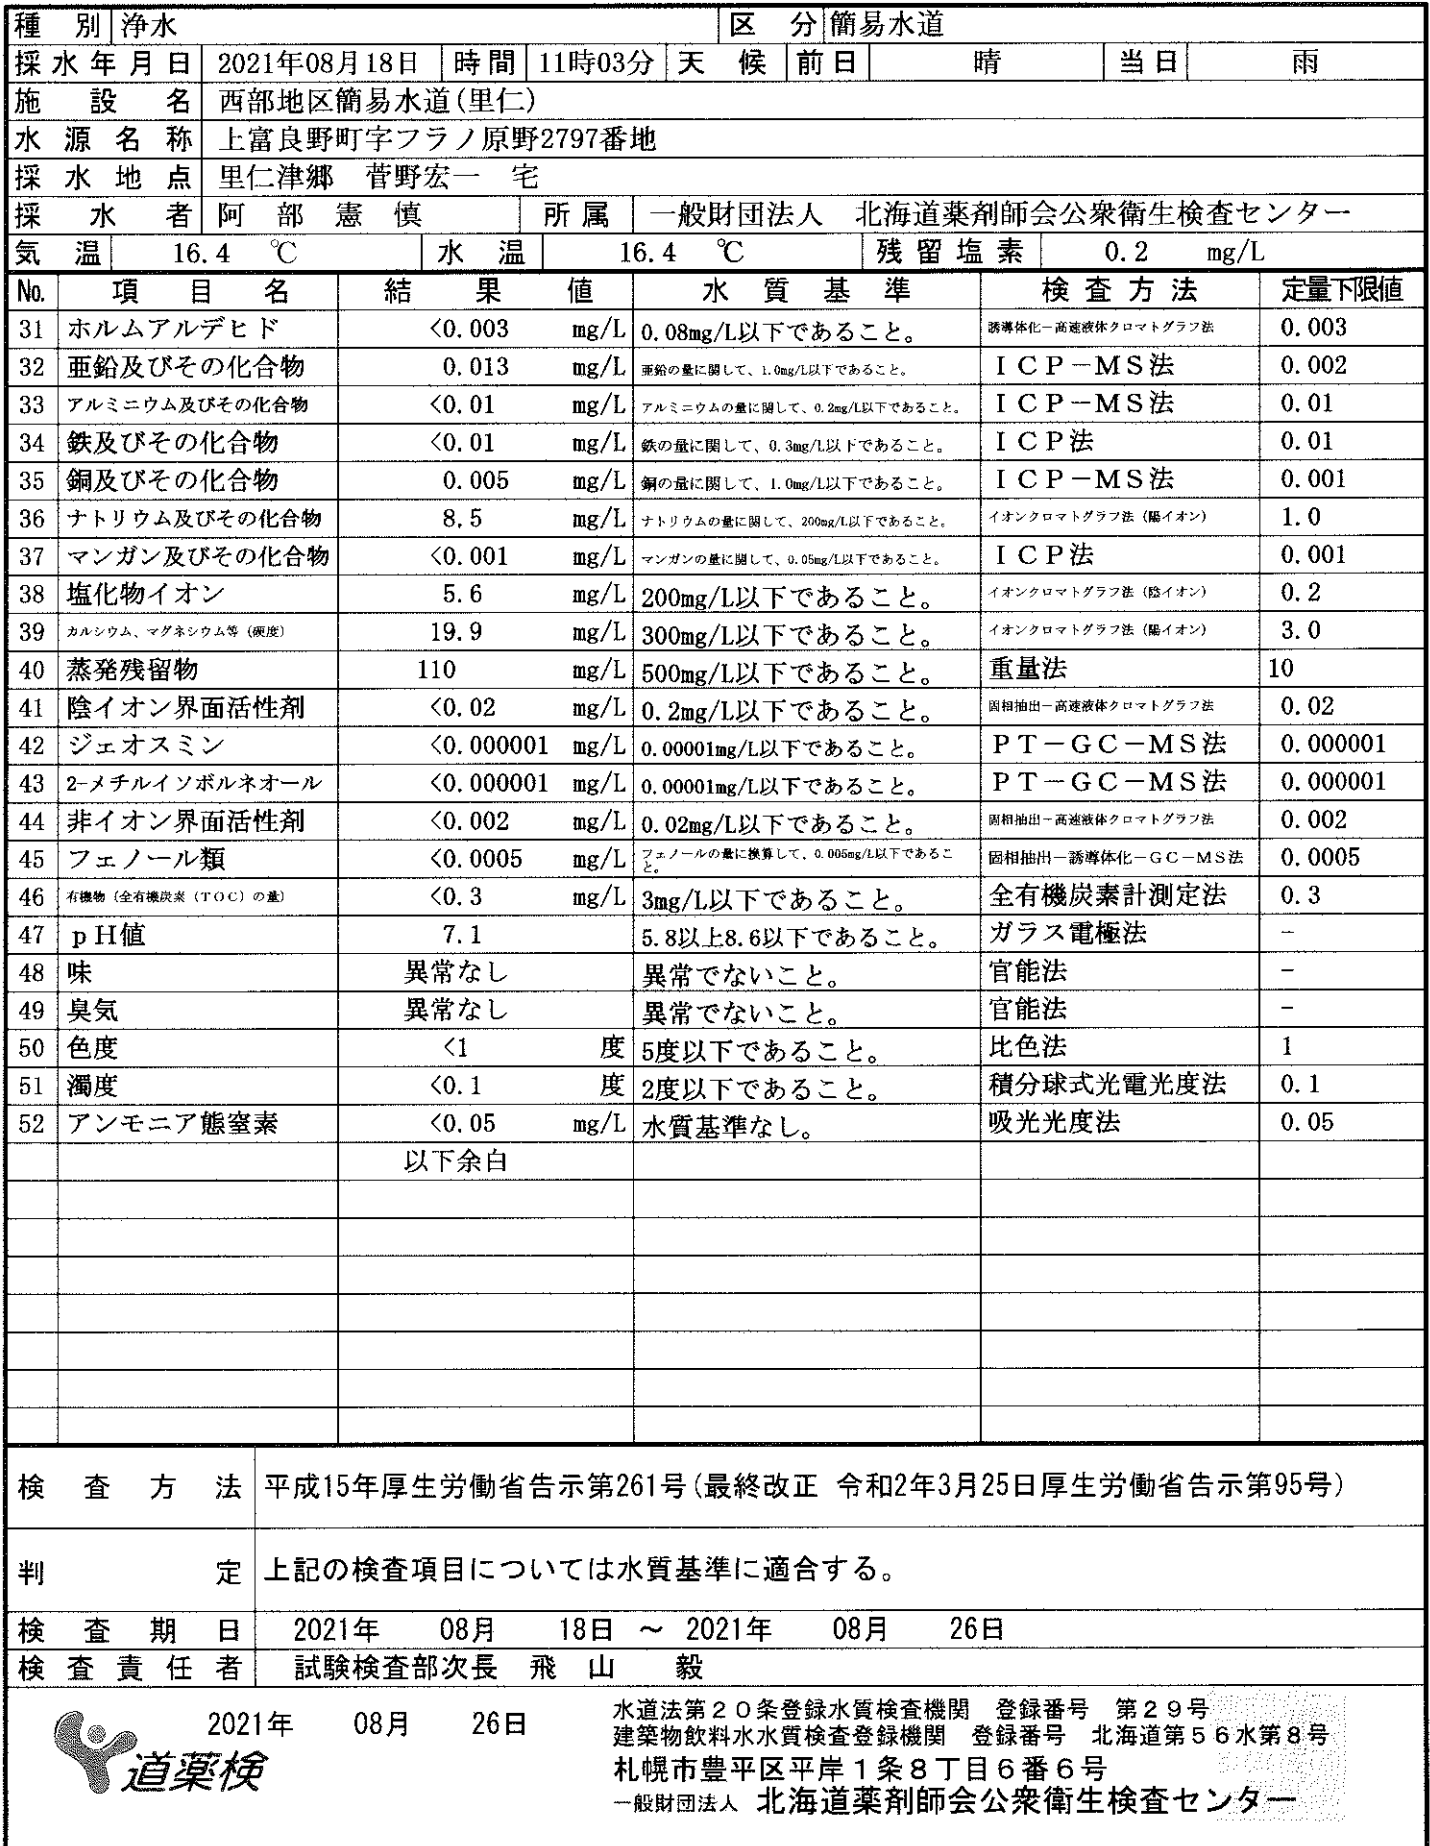 種 別 浄水 区 分 簡易水道
採水年月日 2021年08月18日 時間 11時03分 天 候 前日 晴 当日 雨
施 設 名 西部地区簡易水道(里仁)
水 源 名 称 上富良野町字フラノ原野2797番地
採 水 地 点 里仁津郷 菅野宏一 宅
採 水 者 阿 部 憲 慎 所 属 一般財団法人 北海道薬剤師会公衆衛生検査センター
気 温 16.4 ℃ 水 温 16.4 ℃ 残 留 塩 素 0.2 mg/L
No. 項 目 名 結 果 値 水 質 基 準 検 査 方 法 定量下限値
31 ホルムアルデヒド <0.003 mg/L 0.08mg/L以下であること。 誘導体化－高速液体クロマトグラフ法 0.003
32 亜鉛及びその化合物 0.013 mg/L 亜鉛の量に関して、1.0mg/L以下であること。 ＩＣＰ－ＭＳ法 0.002
33 アルミニウム及びその化合物 <0.01 mg/L アルミニウムの量に関して、0.2mg/L以下であること。 ＩＣＰ－ＭＳ法 0.01
34 鉄及びその化合物 <0.01 mg/L 鉄の量に関して、0.3mg/L以下であること。 ＩＣＰ法 0.01
35 銅及びその化合物 0.005 mg/L 銅の量に関して、1.0mg/L以下であること。 ＩＣＰ－ＭＳ法 0.001
36 ナトリウム及びその化合物 8.5 mg/L ナトリウムの量に関して、200mg/L以下であること。 イオンクロマトグラフ法（陽イオン） 1.0
37 マンガン及びその化合物 <0.001 mg/L マンガンの量に関して、0.05mg/L以下であること。 ＩＣＰ法 0.001
38 塩化物イオン 5.6 mg/L 200mg/L以下であること。 イオンクロマトグラフ法（陰イオン） 0.2
39 カルシウム、マグネシウム等（硬度） 19.9 mg/L 300mg/L以下であること。 イオンクロマトグラフ法（陽イオン） 3.0
40 蒸発残留物 110 mg/L 500mg/L以下であること。 重量法 10
41 陰イオン界面活性剤 <0.02 mg/L 0.2mg/L以下であること。 固相抽出－高速液体クロマトグラフ法 0.02
42 ジェオスミン <0.000001 mg/L 0.00001mg/L以下であること。 ＰＴ－ＧＣ－ＭＳ法 0.000001
43 2-メチルイソボルネオール <0.000001 mg/L 0.00001mg/L以下であること。 ＰＴ－ＧＣ－ＭＳ法 0.000001
44 非イオン界面活性剤 <0.002 mg/L 0.02mg/L以下であること。 固相抽出－高速液体クロマトグラフ法 0.002
45 フェノール類 <0.0005 mg/L フェノールの量に換算して、0.005mg/L以下であること。 固相抽出－誘導体化－ＧＣ－ＭＳ法 0.0005
46 有機物（全有機炭素（ＴＯＣ）の量） <0.3 mg/L 3mg/L以下であること。 全有機炭素計測定法 0.3
47 ｐＨ値 7.1 5.8以上8.6以下であること。 ガラス電極法 －
48 味 異常なし 異常でないこと。 官能法 －
49 臭気 異常なし 異常でないこと。 官能法 －
50 色度 <1 度 5度以下であること。 比色法 1
51 濁度 <0.1 度 2度以下であること。 積分球式光電光度法 0.1
52 アンモニア態窒素 <0.05 mg/L 水質基準なし。 吸光光度法 0.05
以下余白
検 査 方 法 平成15年厚生労働省告示第261号(最終改正 令和2年3月25日厚生労働省告示第95号)
判 定 上記の検査項目については水質基準に適合する。
検 査 期 日 2021年 08月 18日 ～ 2021年 08月 26日
検 査 責 任 者 試験検査部次長 飛 山 毅
2021年 08月 26日
道薬検
水道法第２０条登録水質検査機関 登録番号 第２９号
建築物飲料水水質検査登録機関 登録番号 北海道第５６水第８号
札幌市豊平区平岸１条８丁目６番６号
一般財団法人 北海道薬剤師会公衆衛生検査センター